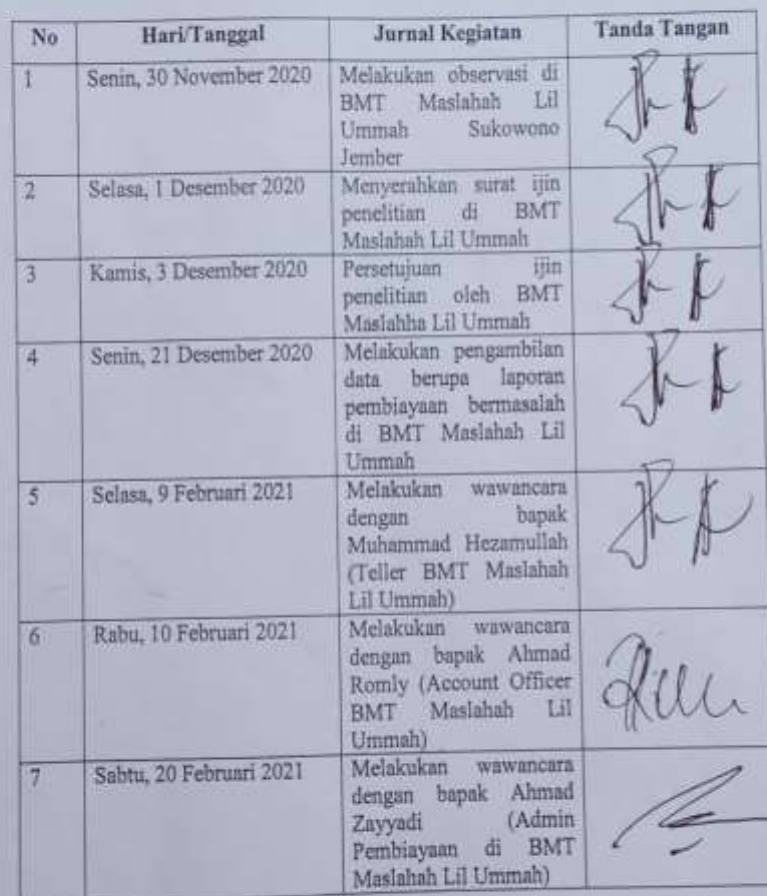 No Hari/Tanggal Jurnal Kegiatan Tanda Tangan
1 Senin, 30 November 2020 Melakukan observasi di
BMT Maslahah Lil
Ummah Sukowono
Jember
2 Selasa, 1 Desember 2020 Menyerahkan surat ijin
penelitian di BMT
Maslahah Lil Ummah
3 Kamis, 3 Desember 2020 Persetujuan ijin
penelitian oleh BMT
Maslahha Lil Ummah
4 Senin, 21 Desember 2020 Melakukan pengambilan
data berupa laporan
pembiayaan bermasalah
di BMT Maslahah Lil
Ummah
5 Selasa, 9 Februari 2021 Melakukan wawancara
dengan bapak
Muhammad Hezamullah
(Teller BMT Maslahah
Lil Ummah)
6 Rabu, 10 Februari 2021 Melakukan wawancara
dengan bapak Ahmad
Romly (Account Officer
BMT Maslahah Lil
Ummah)
7 Sabtu, 20 Februari 2021 Melakukan wawancara
dengan bapak Ahmad
Zayyadi (Admin
Pembiayaan di BMT
Maslahah Lil Ummah)